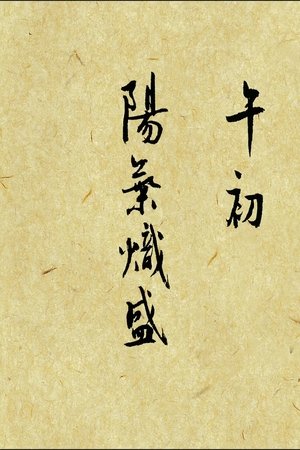 午初
陽氣熾盛